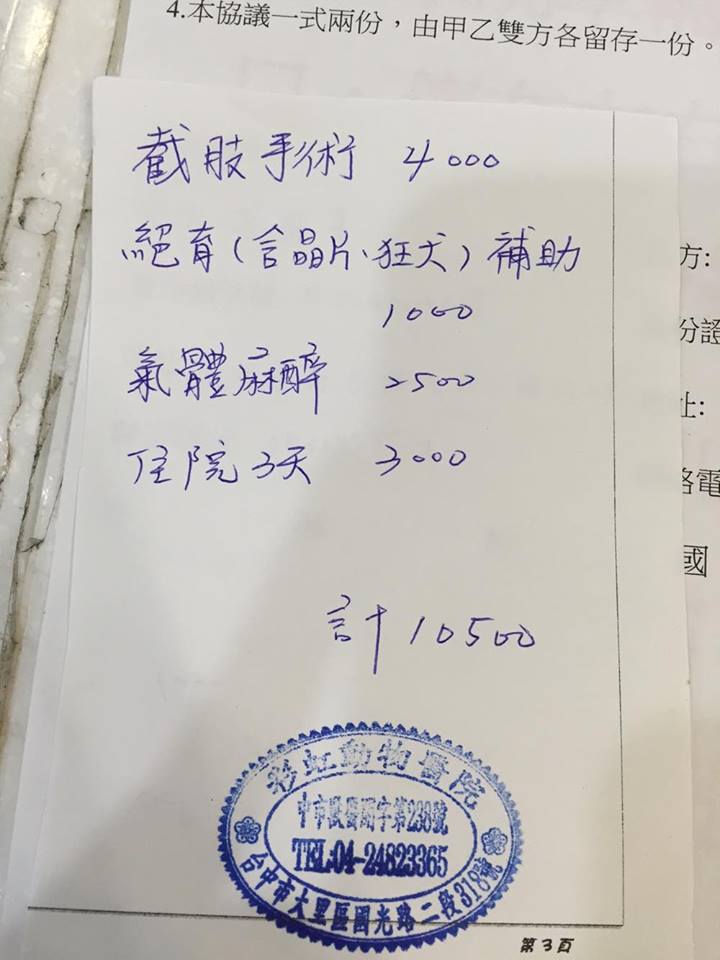 4.本協議一式兩份，由甲乙雙方各留存一份。
截肢手術 4000
絕育(含晶片、狂犬)補助
1000
氣體麻醉 2500
住院3天 3000
計 10500
方:
份證
址:
絡電
國
彩虹動物醫院
TEL:04-24823365
台中市大里區國光路二段318號
第3頁